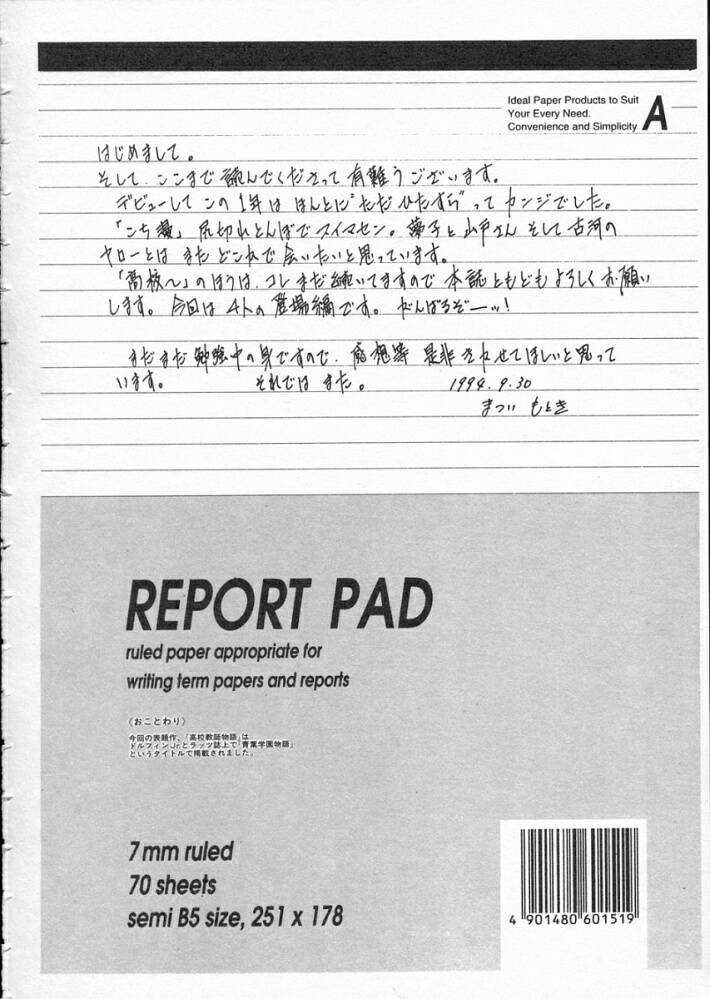 Ideal Paper Products to Suit
Your Every Need.
Convenience and Simplicity
A
はじめまして。
そして、ここまで読んでくださって有難うございます。
デビューしてこの1年はほんとに“ただひたすら”ってカンジでした。
「こち漫」尻切れとんぼでスイマセン。夢子と山戸さんそして古河の
ヤローとはまたどこかで会いたいと思っています。
「高校〜」のほうは、コレまだ続いてますので本誌ともどもよろしくお願い
します。今回は4人の登場編です。がんばるぞーッ!
まだまだ勉強中の身ですので、感想等是非きかせてほしいと思って
います。それではまた。
1994.9.30
まつい もとき
REPORT PAD
ruled paper appropriate for
writing term papers and reports
《おことわり》
今回の表題作、「高校教師物語」は
ドルフィンJr.とラッツ誌上で「青葉学園物語」
というタイトルで掲載されました。
7mm ruled
70 sheets
semi B5 size, 251 x 178
4 901480 601519